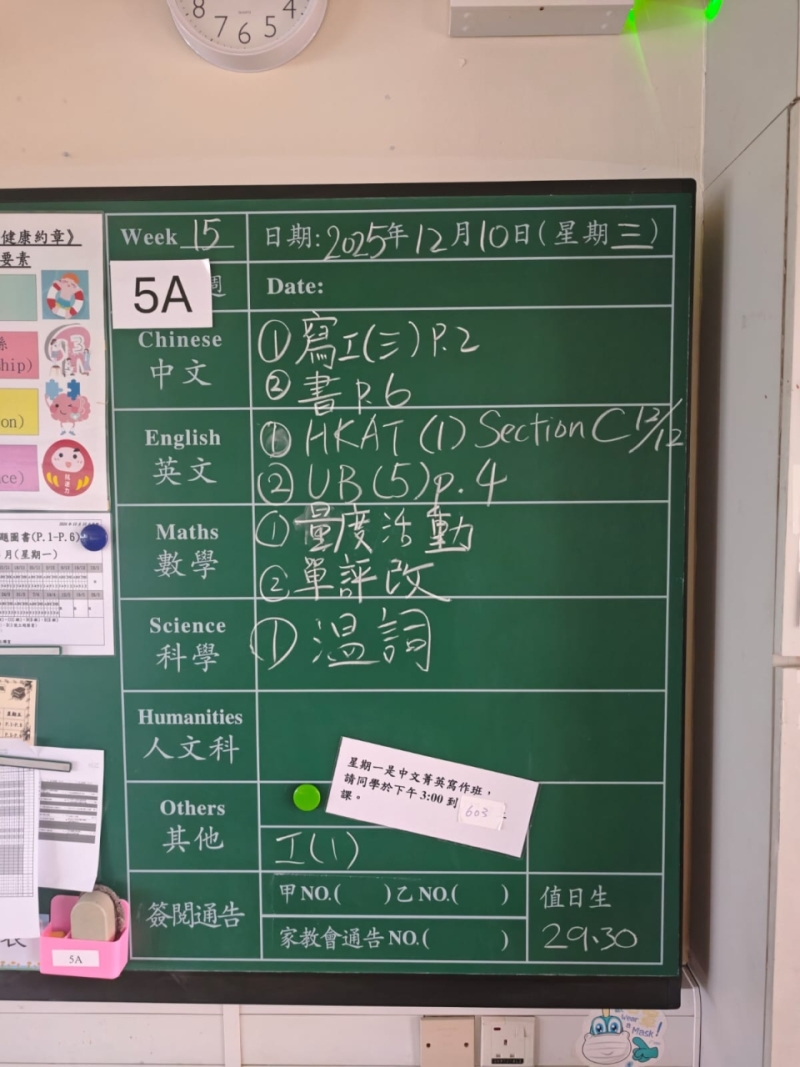 8 7 6 5 4
健康約章》
要素
hip)
on)
ce)
題圖書(P.1-P.6)
月(星期一)
Week 15
日期: 2025年12月10日(星期三)
5A
週
Date:
Chinese
中文
①寫工(三) P.2
②書 P.6
English
英文
① HKAT (1) Section C 12/12
② UB (5) p.4
Maths
數學
①量度活動
②單評改
Science
科學
①溫詞
Humanities
人文科
星期一是中文菁英寫作班，
請同學於下午 3:00 到 603
課。
Others
其他
工(1)
簽閱通告
甲 NO.( )乙 NO.( )
家教會通告 NO.( )
值日生
29.30
5A
Wear
a Mask!